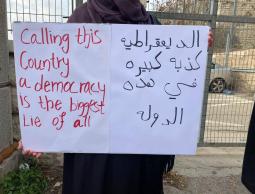 Calling this
Country
a democracy
is the biggest
Lie of all
الديمقراطيه
كذبه كبيره
في هذه
الدوله